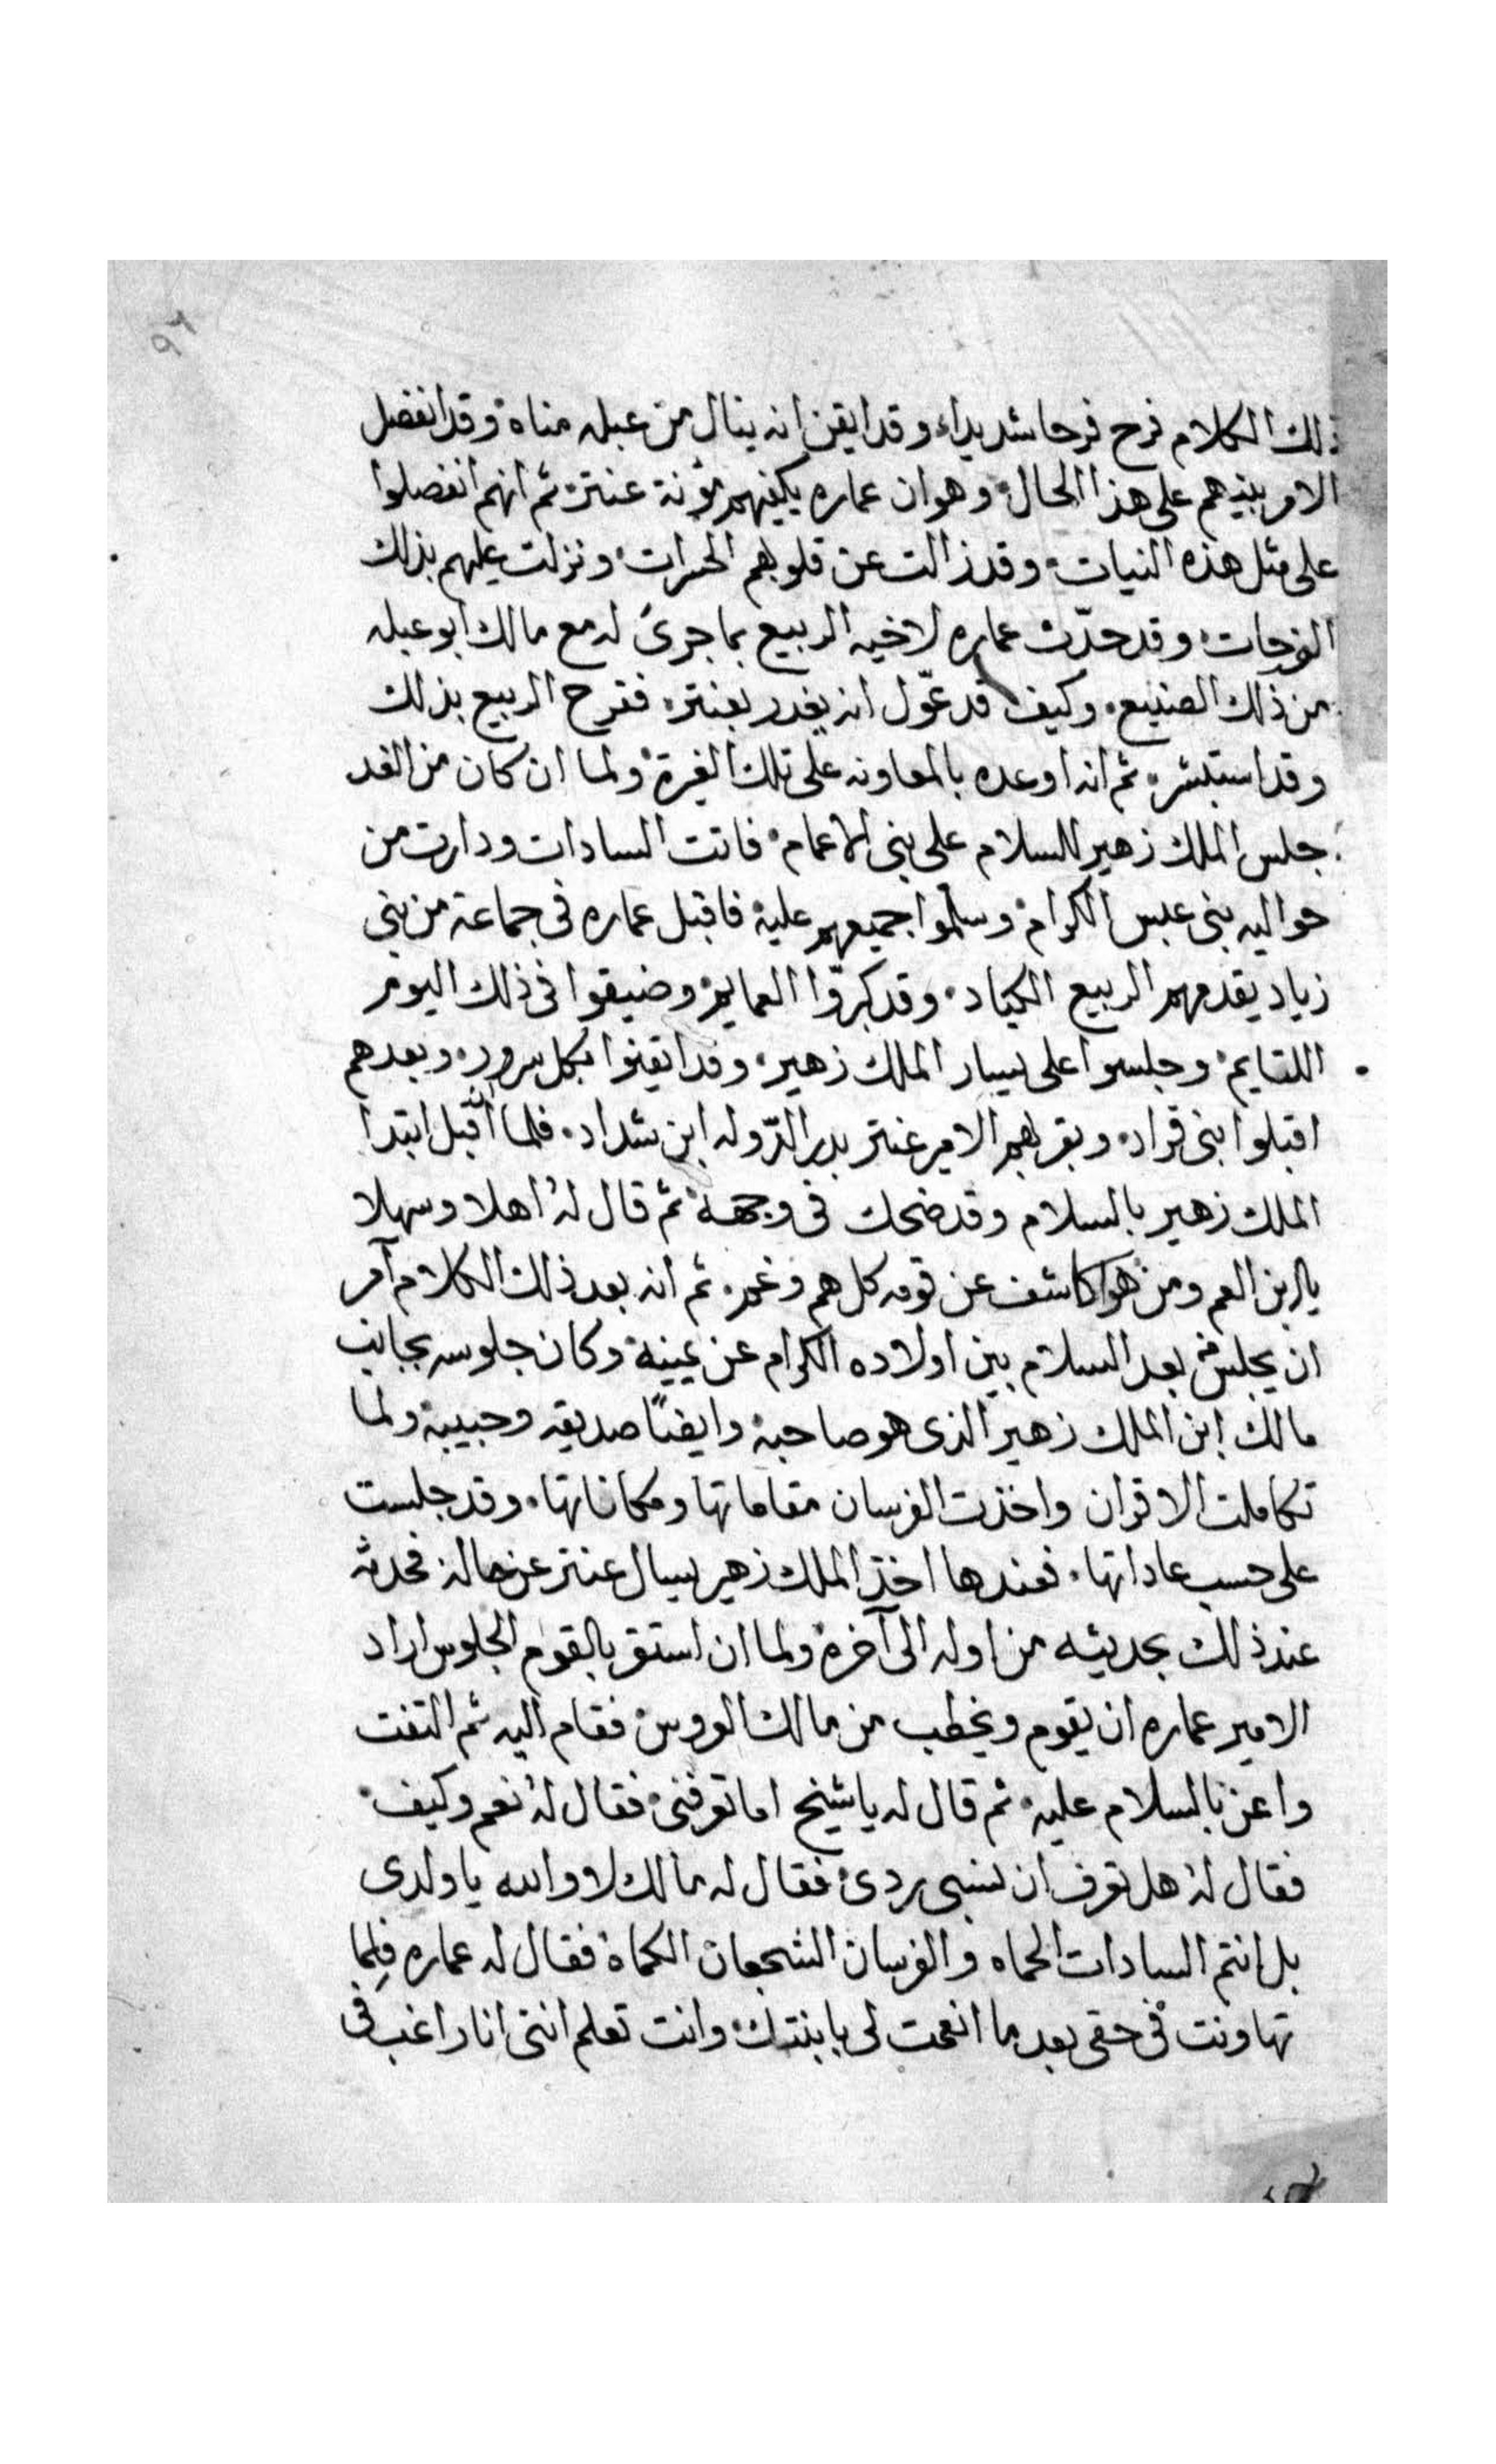 ٩٦
ذلك الكلام فرح فرحا شديداً، وقد ايقن انه ينال من عبله مناه، وقد انفصل
الامر بينهم على هذا الحال، وهو ان عماره يكفيهم مؤنة عنتر، ثم انهم انفصلوا
على مثل هذه النيات، وقد زالت عن قلوبهم الحسرات، ونزلت عليهم بذلك
الفرحات، وقد حدّث عماره لاخيه الربيع بما جرى له مع مالك ابو عبله
من ذلك الصنيع، وكيف قد عوّل انه يغدر بعنتر، ففرح الربيع بذلك
وقد استبشر، ثم انه اوعده بالمعاونه على تلك الغيرة، ولما ان كان من الغد
جلس الملك زهير للسلام على بنى الاعمام، فاتت السادات ودارت من
حواليه بنى عبس الكرام، وسلموا جميعهم عليه، فاقبل عماره فى جماعة من بنى
زياد يقدمهم الربيع الكياد، وقد كبرّوا العمايم، وضيقوا فى ذلك اليوم
اللتايم، وجلسوا على يسار الملك زهير، وقد ايقنوا بكل سرور، وبعدهم
اقبلوا بنى قراد، وبقربهم الامير عنتر بدر الدّوله ابن شداد، فلما اقبل ابتدا
الملك زهير بالسلام وقد ضحك فى وجهه، ثم قال له اهلا وسهلا
يا ابن العم ومن هو اكاشف عن قومه كل هم وغم، ثم انه بعد ذلك الكلام آمر
ان يجلس بعد السلام بين اولاده الكرام عن يمينه، وكان جلوسه بجانب
مالك ابن الملك زهير الذى هو صاحبه، وايضًا صديقه وحبيبه، ولما
تكاملت الاقران واخذت الفرسان مقاماتها ومكاناتها، وقد جلست
على حسب عاداتها، فعندها اخذ الملك زهير يسال عنتر عن حاله، فحدثه
عند ذلك بحديثه من اوله الى آخره، ولما ان استقر بالقوم الجلوس اراد
الامير عماره ان يقوم ويخطب من مالك العروس، فقام اليه ثم التفت
واعز بالسلام عليه، ثم قال له يا شيخ اما تعرفنى، فقال له نعم وكيف،
فقال له هل تعرف ان نسبى ردى، فقال له مالك لا والله يا ولدى
بل انتم السادات الحماه والفرسان الشجعان الكماة، فقال له عماره فلما
تهاونت فى حقى بعد ما انعمت لى بابنتك، وانت تعلم اننى انا راغب فى